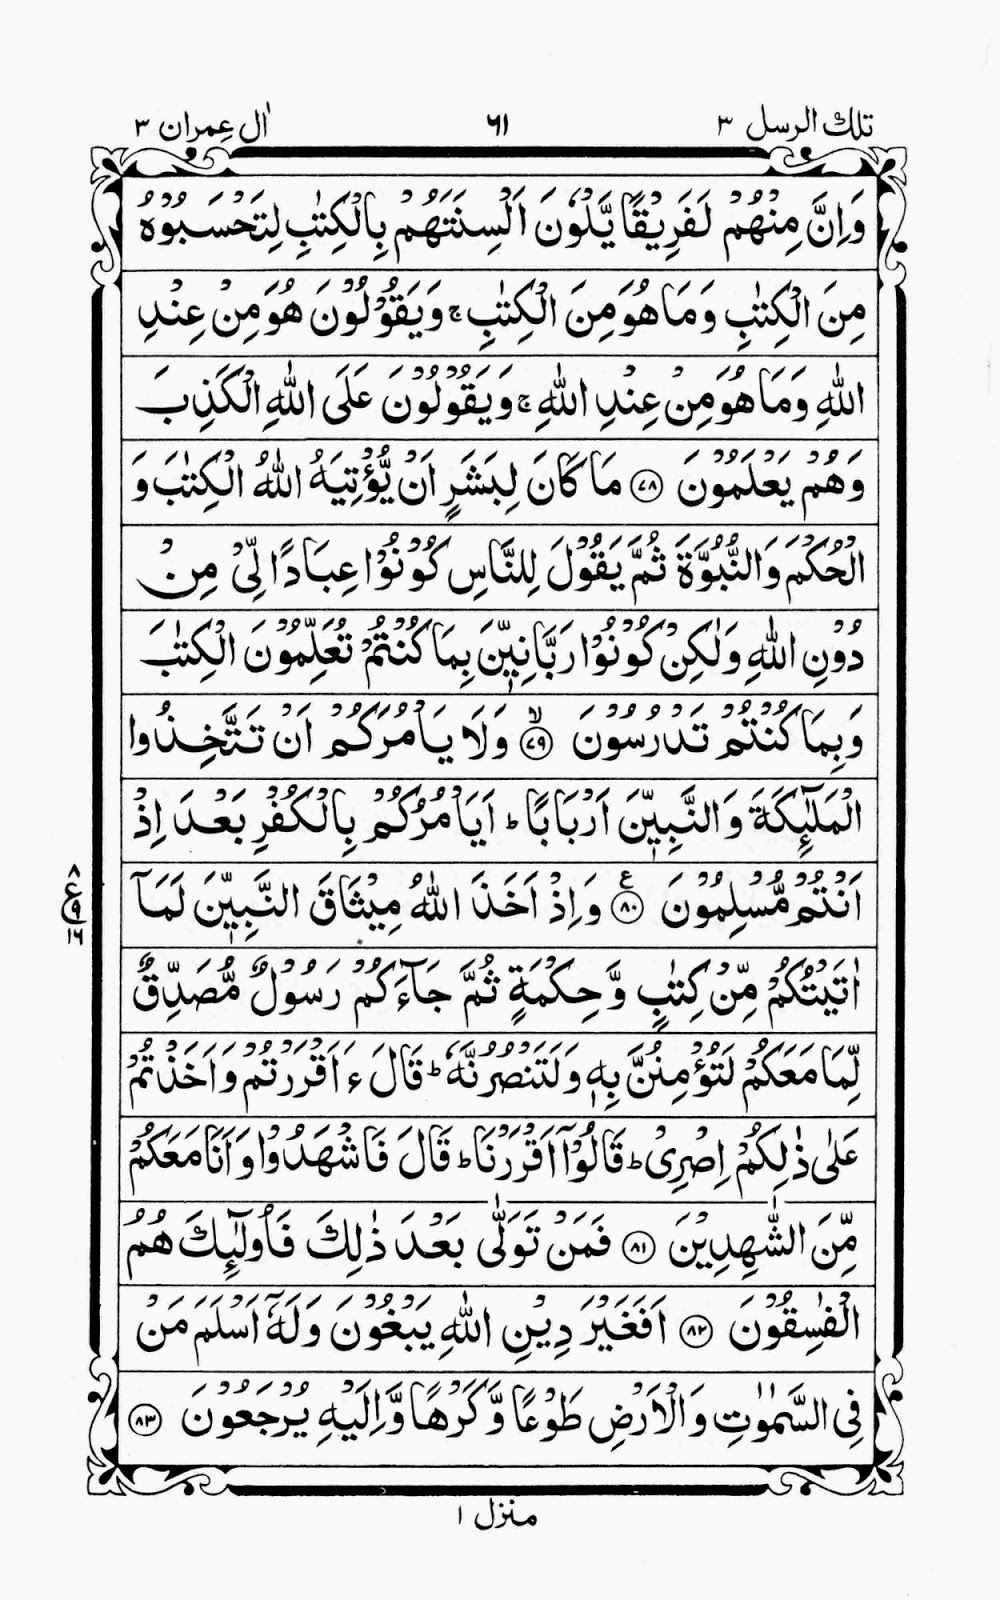 تلك الرسل ٣ ٦١ اٰل عِمران ٣
وَاِنَّ مِنْهُمْ لَفَرِيْقًا يَّلْوٗنَ اَلْسِنَتَهُمْ بِالْكِتٰبِ لِتَحْسَبُوْهُ
مِنَ الْكِتٰبِ وَمَا هُوَ مِنَ الْكِتٰبِ ۚ وَيَقُوْلُوْنَ هُوَ مِنْ عِنْدِ
اللّٰهِ وَمَا هُوَ مِنْ عِنْدِ اللّٰهِ ۚ وَيَقُوْلُوْنَ عَلَى اللّٰهِ الْكَذِبَ
وَهُمْ يَعْلَمُوْنَ ﴿٧٨﴾ مَا كَانَ لِبَشَرٍ اَنْ يُّؤْتِيَهُ اللّٰهُ الْكِتٰبَ وَ
الْحُكْمَ وَالنُّبُوَّةَ ثُمَّ يَقُوْلَ لِلنَّاسِ كُوْنُوْا عِبَادًا لِّيْ مِنْ
دُوْنِ اللّٰهِ وَلٰكِنْ كُوْنُوْا رَبَّانِيّٖنَ بِمَا كُنْتُمْ تُعَلِّمُوْنَ الْكِتٰبَ
وَبِمَا كُنْتُمْ تَدْرُسُوْنَ ﴿٧٩﴾ۙ وَلَا يَاْمُرَكُمْ اَنْ تَتَّخِذُوا
الْمَلٰٓئِكَةَ وَالنَّبِيّٖنَ اَرْبَابًا ؕ اَيَاْمُرُكُمْ بِالْكُفْرِ بَعْدَ اِذْ
اَنْتُمْ مُّسْلِمُوْنَ ﴿٨٠﴾ ع وَاِذْ اَخَذَ اللّٰهُ مِيْثَاقَ النَّبِيّٖنَ لَمَاۤ
٨ ع ٩ ١٦
اٰتَيْتُكُمْ مِّنْ كِتٰبٍ وَّحِكْمَةٍ ثُمَّ جَآءَكُمْ رَسُوْلٌ مُّصَدِّقٌ
لِّمَا مَعَكُمْ لَتُؤْمِنُنَّ بِهٖ وَلَتَنْصُرُنَّهٗ ؕ قَالَ ءَاَقْرَرْتُمْ وَاَخَذْتُمْ
عَلٰى ذٰلِكُمْ اِصْرِيْ ؕ قَالُوْۤا اَقْرَرْنَا ؕ قَالَ فَاشْهَدُوْا وَاَنَا مَعَكُمْ
مِّنَ الشّٰهِدِيْنَ ﴿٨١﴾ فَمَنْ تَوَلّٰى بَعْدَ ذٰلِكَ فَاُولٰٓئِكَ هُمُ
الْفٰسِقُوْنَ ﴿٨٢﴾ اَفَغَيْرَ دِيْنِ اللّٰهِ يَبْغُوْنَ وَلَهٗۤ اَسْلَمَ مَنْ
فِي السَّمٰوٰتِ وَالْاَرْضِ طَوْعًا وَّكَرْهًا وَّاِلَيْهِ يُرْجَعُوْنَ ﴿٨٣﴾
منزل ١